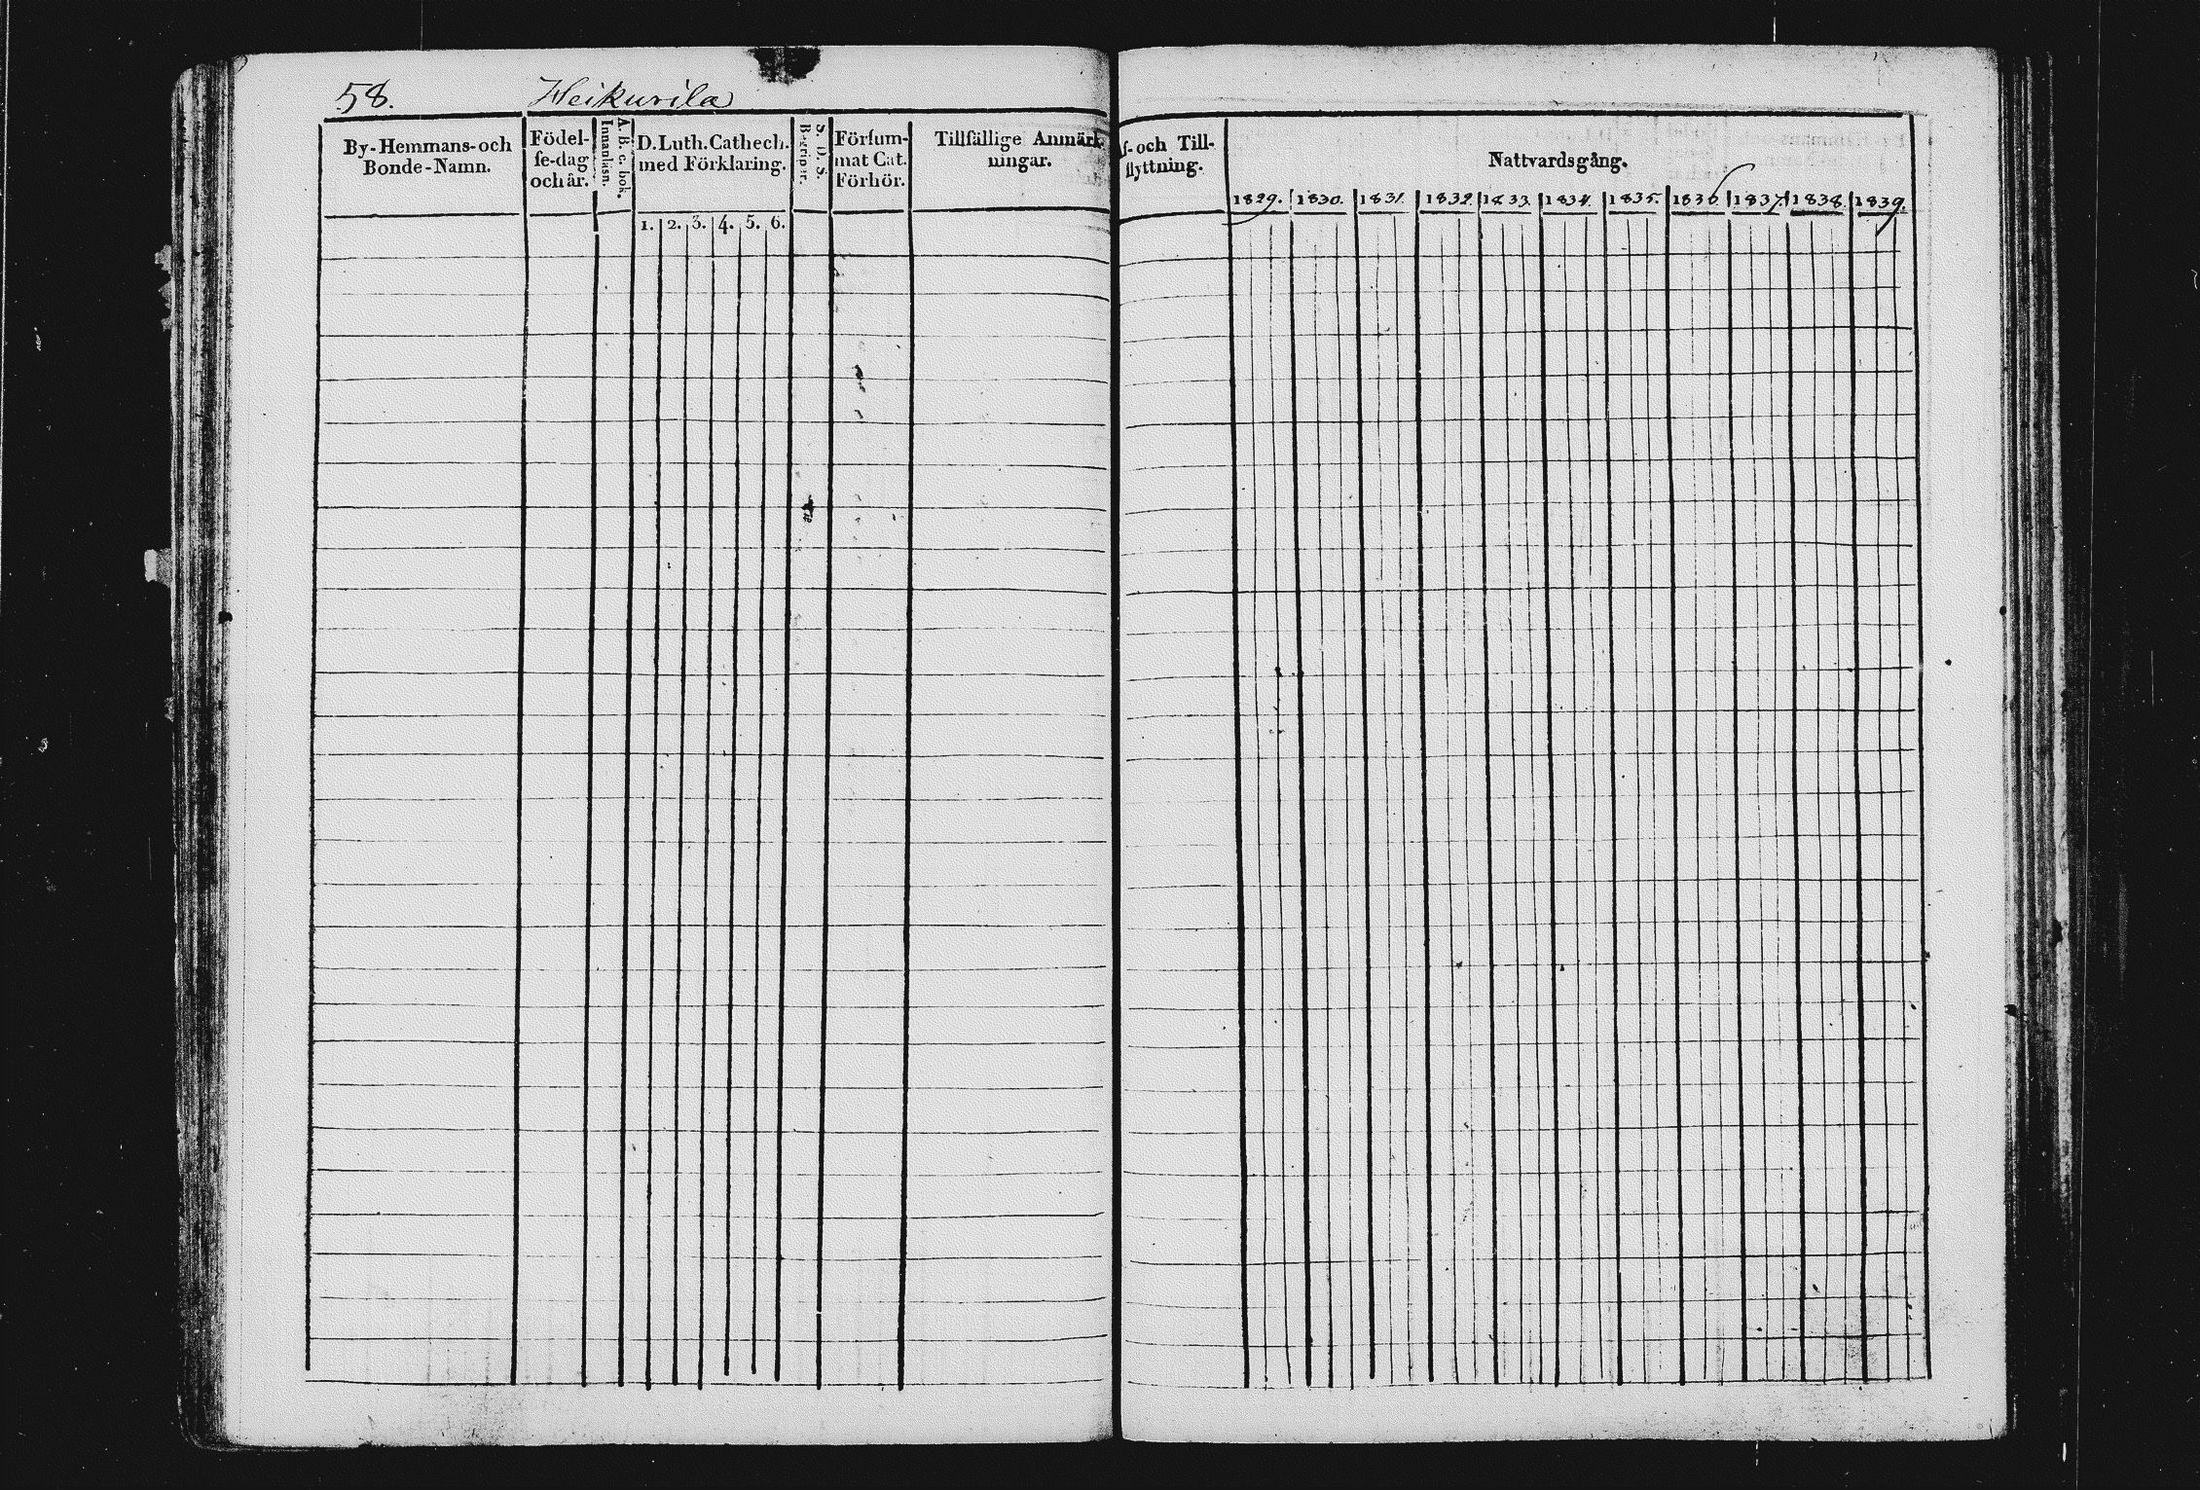 58. Heikurila
By-Hemmans-och
Bonde-Namn.
Födel-
se-dag
och år.
A. B. c. bok.
Innanläsn.
D. Luth. Cathech.
med Förklaring.
1. 2. 3. 4. 5. 6.
S. D. S.
Begriper.
Försum-
mat Cat.
Förhör.
Tillfällige Anmärk
ningar.
f-och Till-
flyttning.
Nattvardsgång.
1829. 1830. 1831. 1832. 1833. 1834. 1835. 1836 1837. 1838. 1839.